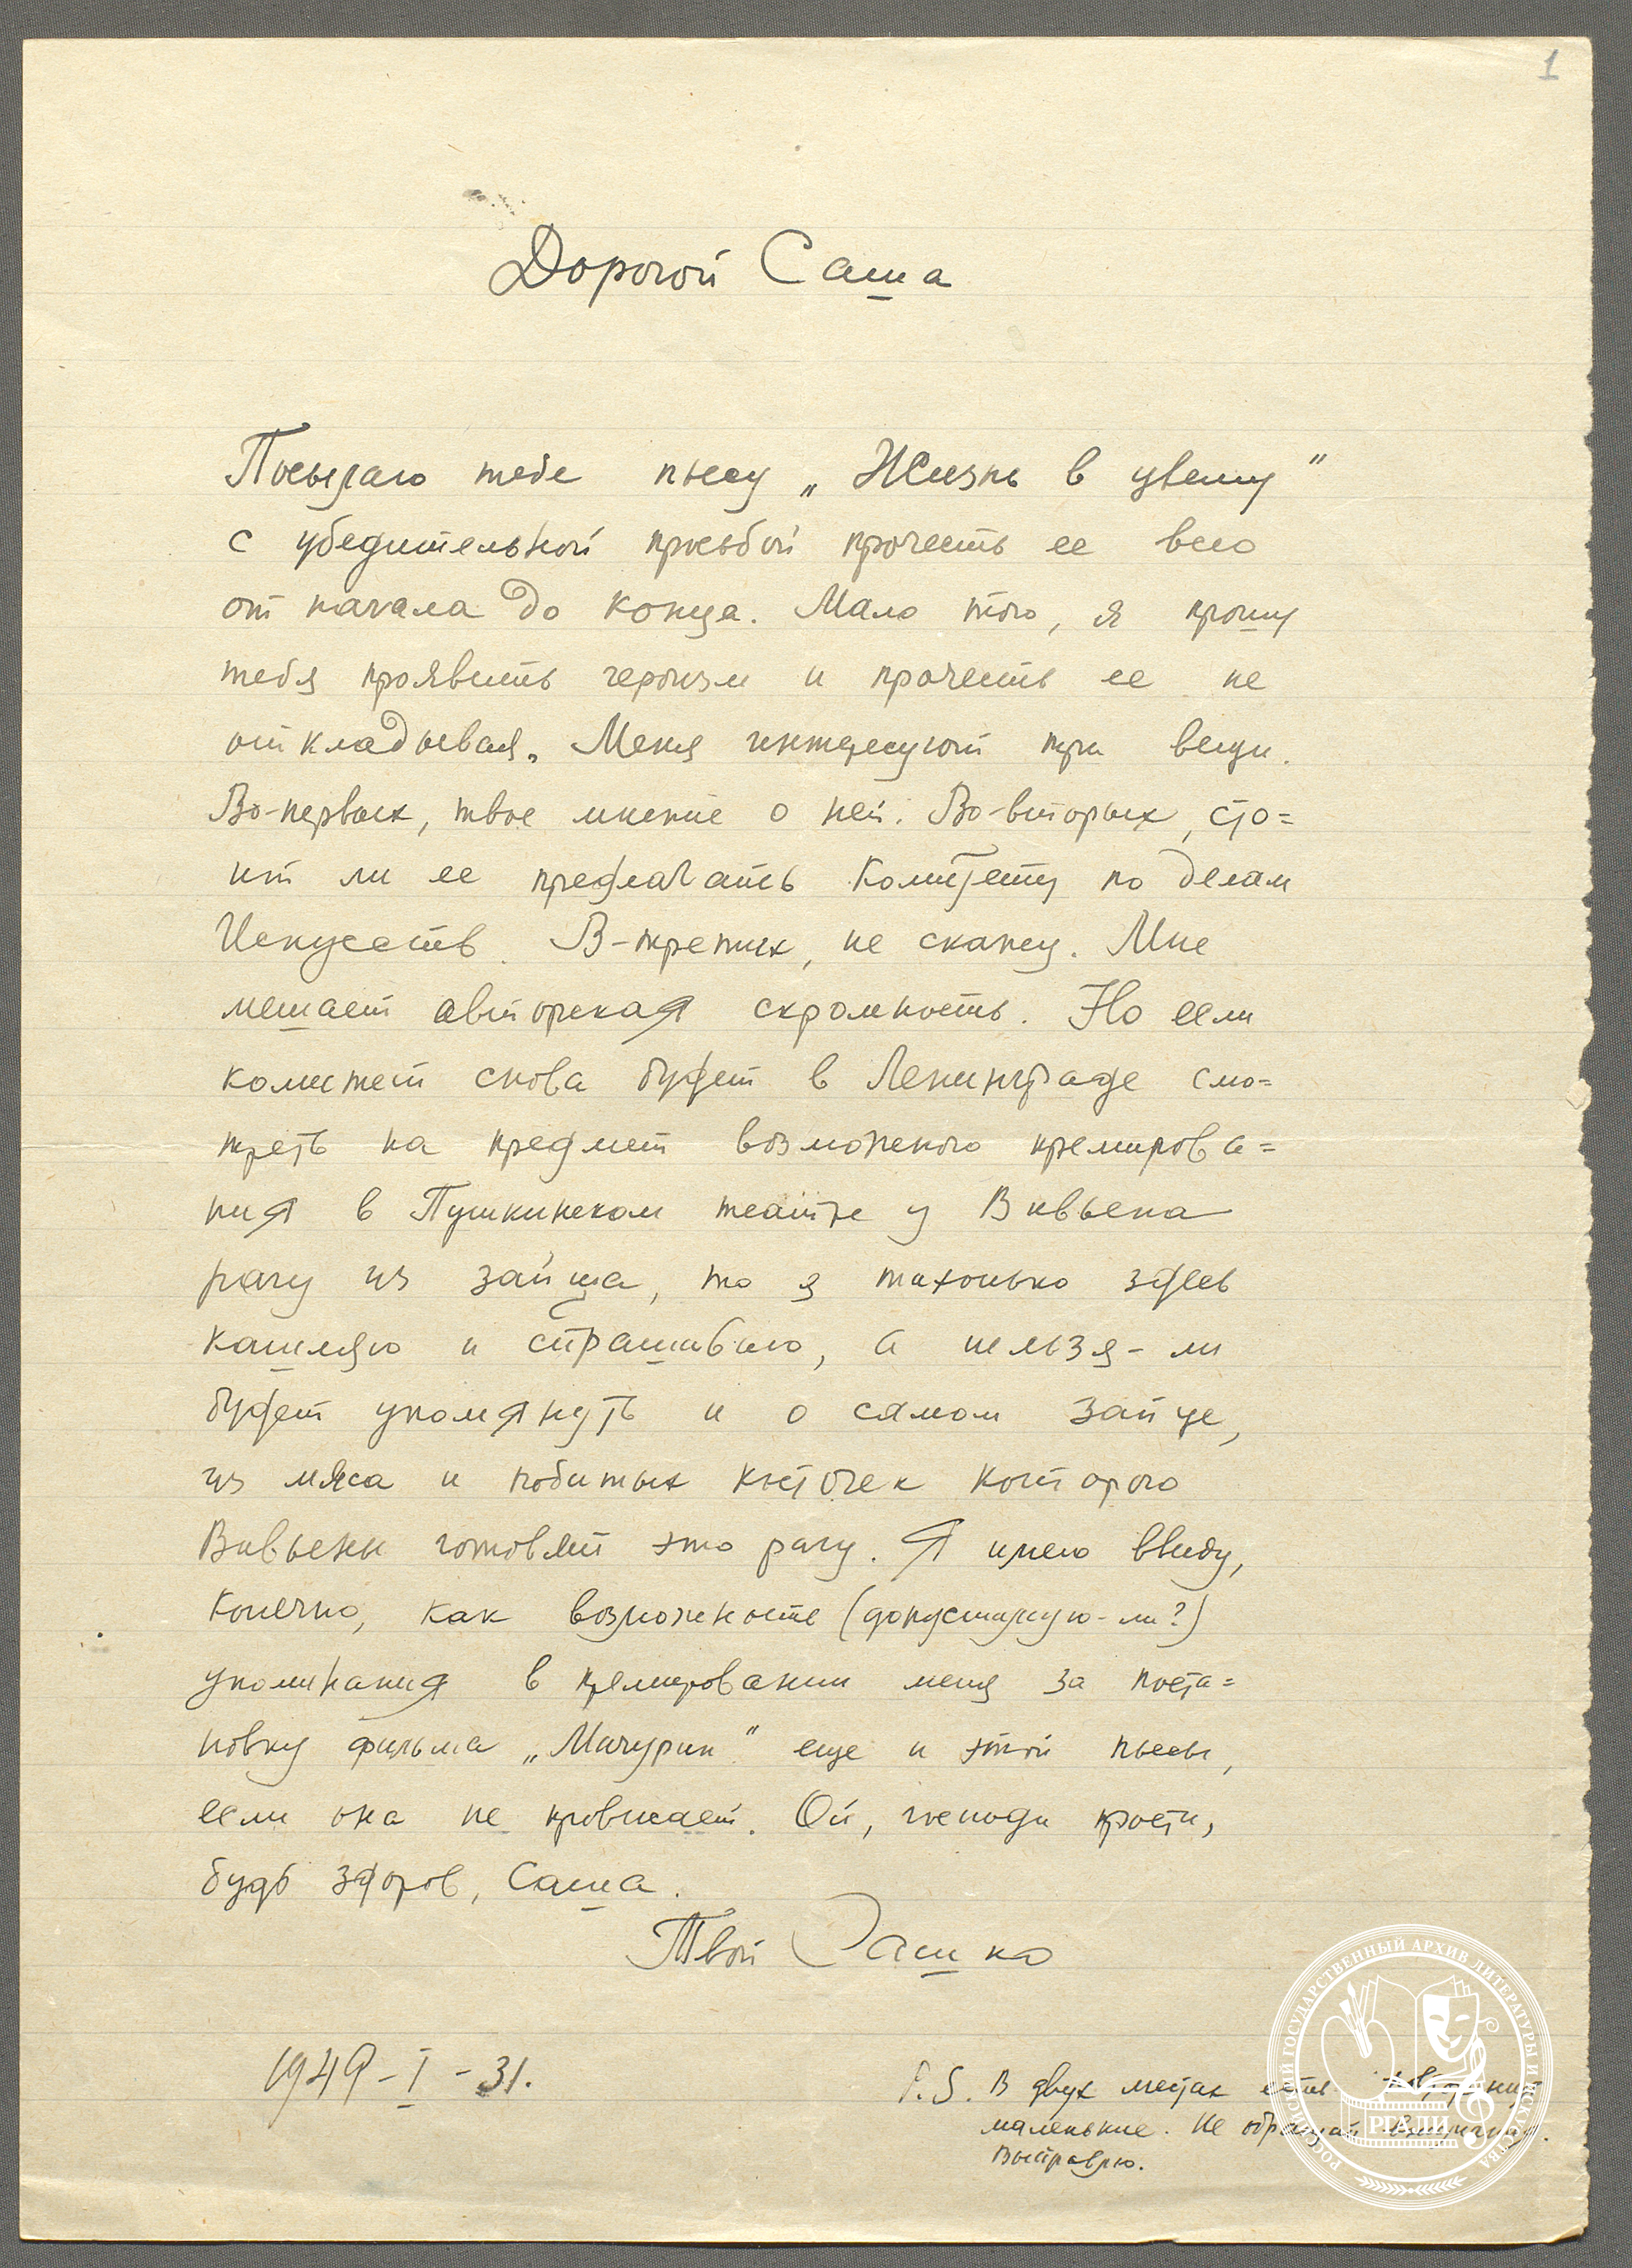 1
Дорогой Саша
Посылаю тебе пьесу „Жизнь в цвету"
с убедительной просьбой прочесть ее всю
от начала до конца. Мало того, я прошу
тебя проявить героизм и прочесть ее не
откладывая. Меня интересуют три вещи.
Во-первых, твое мнение о ней. Во-вторых, сто=
ит ли ее предлагать Комитету по делам
Искусств. В-третих, не скажу. Мне
мешает авторская скромность. Но если
комитет снова будет в Ленинграде смо=
треть на предмет возможного премирова=
ния в Пушкинском театре у Вивьена
рагу из зайца, то я тихонько здесь
кашляю и спрашиваю, а нельзя-ли
будет упомянуть и о самом зайце,
из мяса и побитых косточек которого
Вивьены готовят это рагу. Я имею ввиду,
конечно, как возможность (допустимую-ли?)
упоминания в премировании меня за поста=
новку фильма „Мичурин" еще и этой пьесы,
если она не провисает. Ой, господи прости,
будь здоров, Саша.
Твой Сашко
1949-I-31.
P.S. В двух местах есть повторения
маленькие. Не обращай внимания.
Выправлю.
РОССИЙСКИЙ ГОСУДАРСТВЕННЫЙ АРХИВ ЛИТЕРАТУРЫ И ИСКУССТВА
РГАЛИ